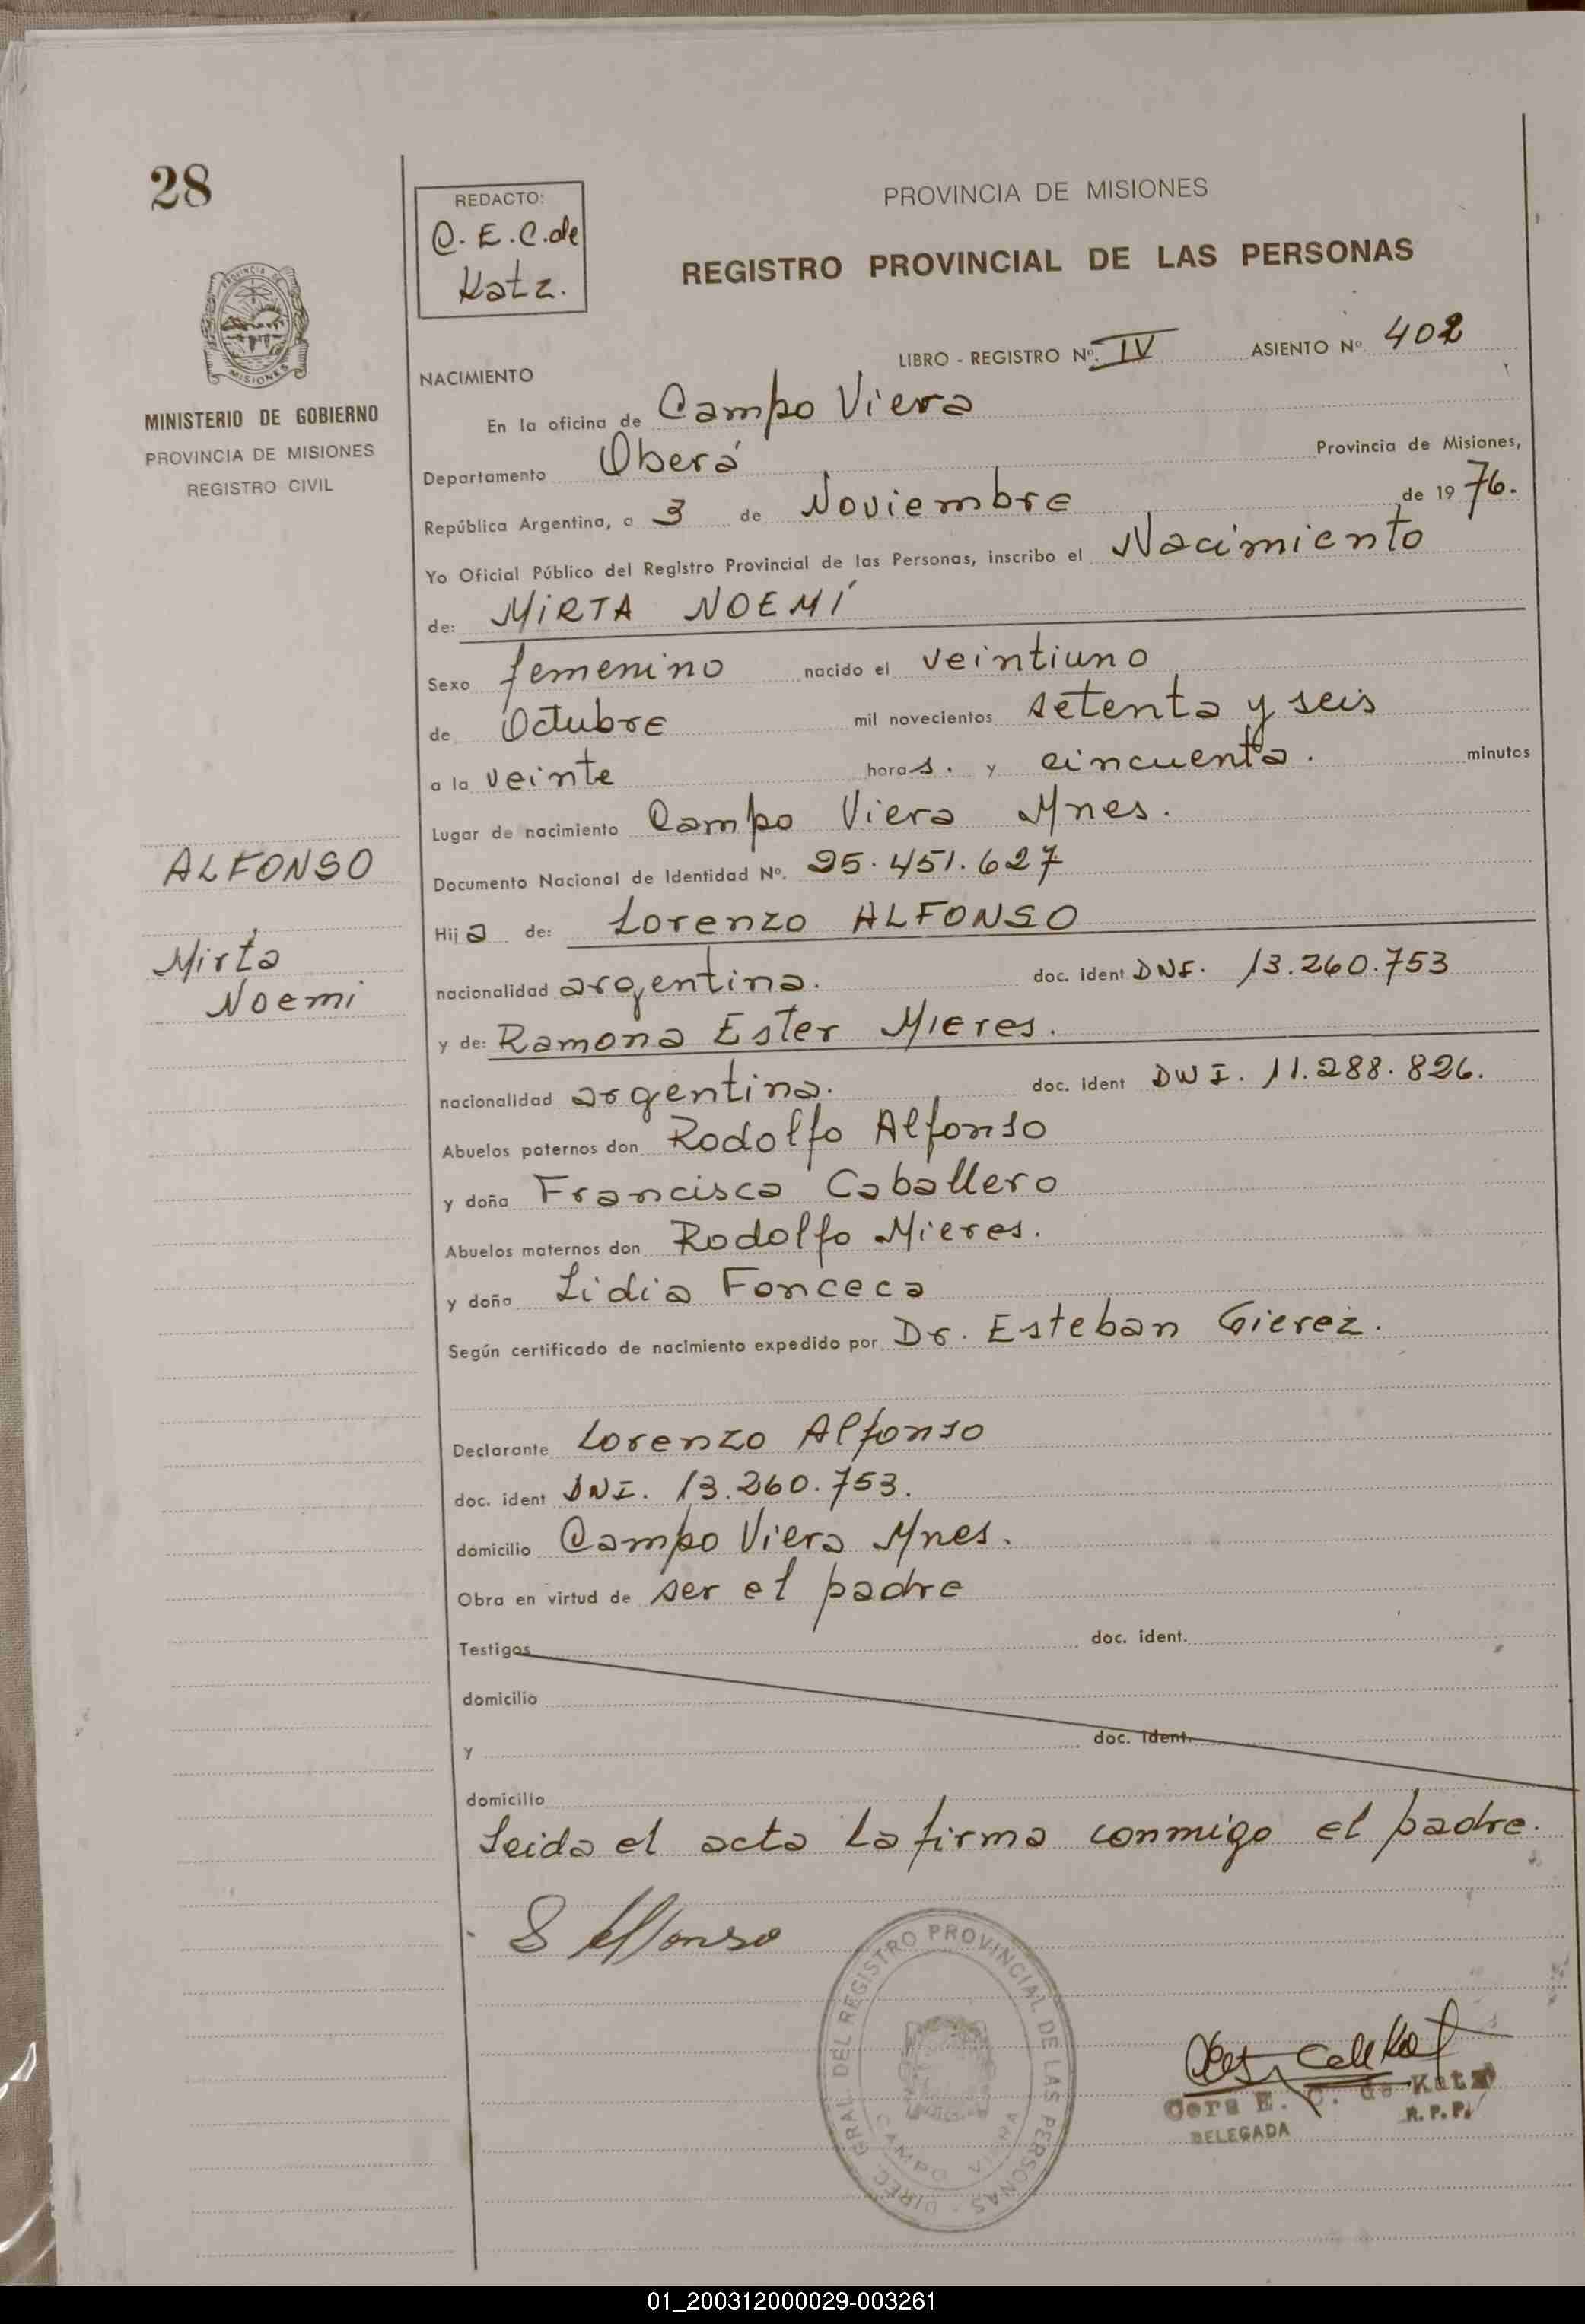 28
REDACTO:
C. E. C. de
Katz.
PROVINCIA DE MISIONES
REGISTRO PROVINCIAL DE LAS PERSONAS
LIBRO - REGISTRO Nº. IV ASIENTO Nº. 402
PROVINCIA DE MISIONES
MINISTERIO DE GOBIERNO
PROVINCIA DE MISIONES
REGISTRO CIVIL
NACIMIENTO
En la oficina de Campo Viera
Departamento Oberá Provincia de Misiones,
República Argentina, a 3 de Noviembre de 1976.
Yo Oficial Público del Registro Provincial de las Personas, inscribo el Nacimiento
de: MIRTA NOEMÍ
Sexo femenino nacido el veintiuno
de Octubre mil novecientos setenta y seis
a la veinte horas. y cincuenta. minutos
Lugar de nacimiento Campo Viera Mnes.
ALFONSO
Mirta
Noemi
Documento Nacional de Identidad Nº. 25.451.627
Hija de: Lorenzo ALFONSO
nacionalidad argentina. doc. ident DNI. 13.260.753
y de: Ramona Ester Mieres.
nacionalidad argentina. doc. ident DNI. 11.288.826.
Abuelos paternos don Rodolfo Alfonso
y doña Francisca Caballero
Abuelos maternos don Rodolfo Mieres.
y doña Lidia Fonceca
Según certificado de nacimiento expedido por Dr. Esteban Gierez.
Declarante Lorenzo Alfonso
doc. ident DNI. 13.260.753.
domicilio Campo Viera Mnes.
Obra en virtud de ser el padre
Testigos doc. ident.
domicilio
y doc. ident.
domicilio
Leida el acta la firma conmigo el padre.
Alfonso
DIREC. GRAL. DEL REGISTRO PROVINCIAL DE LAS PERSONAS
CAMPO VIERA
Cora E. C. de Katz
DELEGADA R.P.P.
01_200312000029-003261